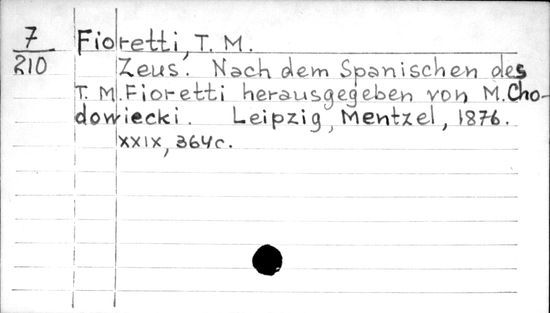 7
210
Fioretti, T. M.
Zeus. Nach dem Spanischen des
T. M. Fioretti herausgegeben von M. Cho-
dowiecki. Leipzig, Mentzel, 1876.
XXIX, 364c.